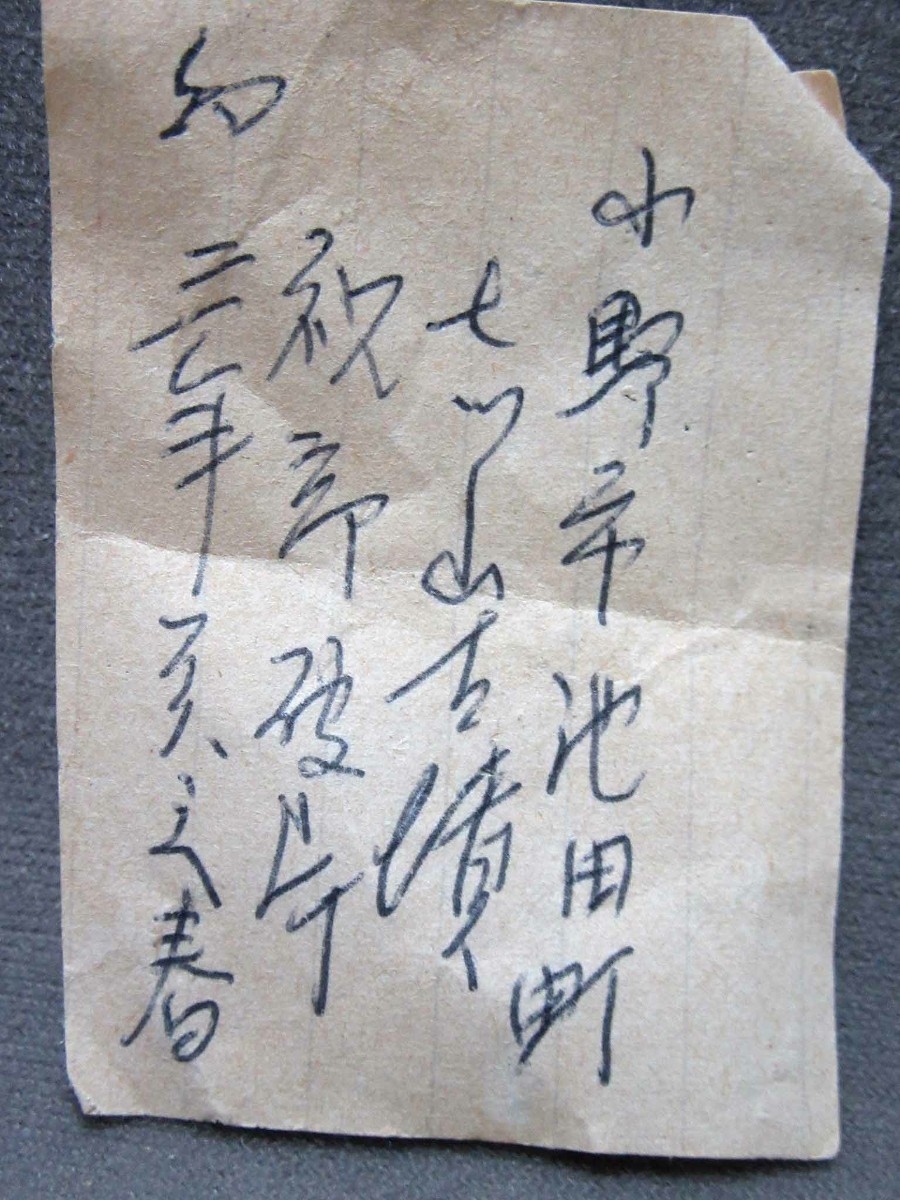 小野市池田町
七ツ山古墳
祝部破片
三七年 之春